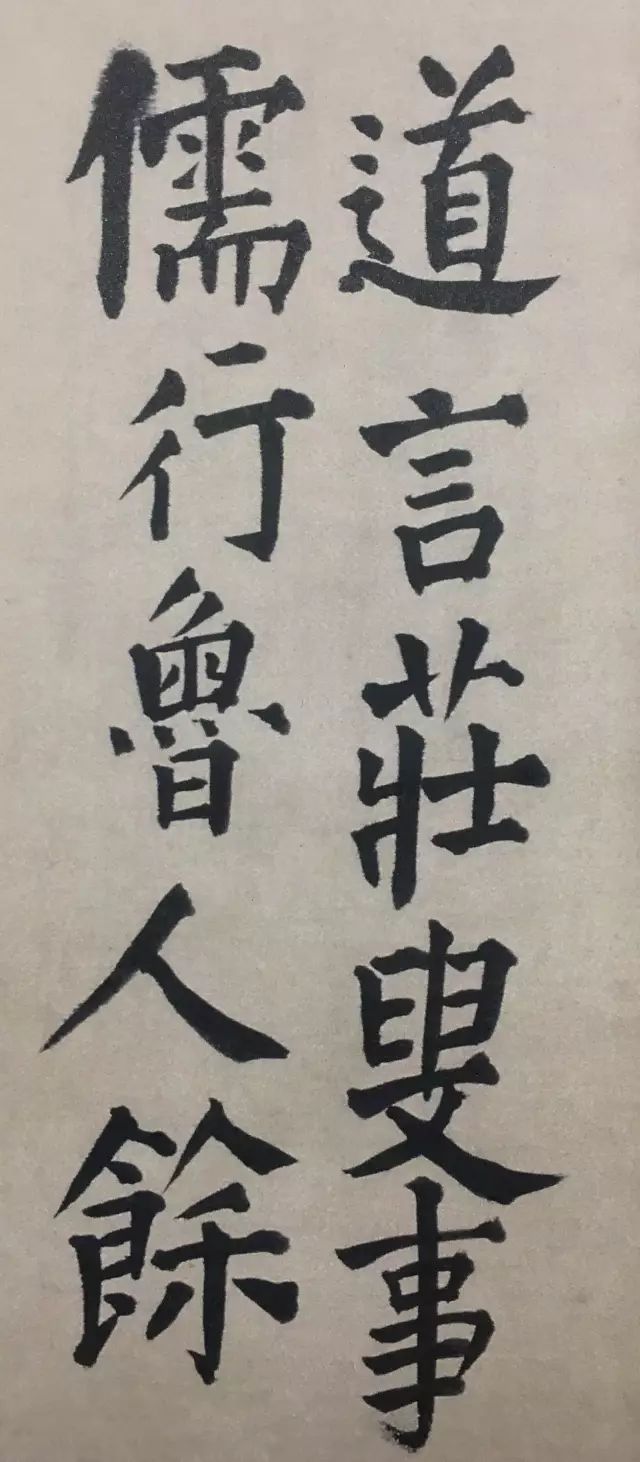 道言莊叟事
儒行魯人餘